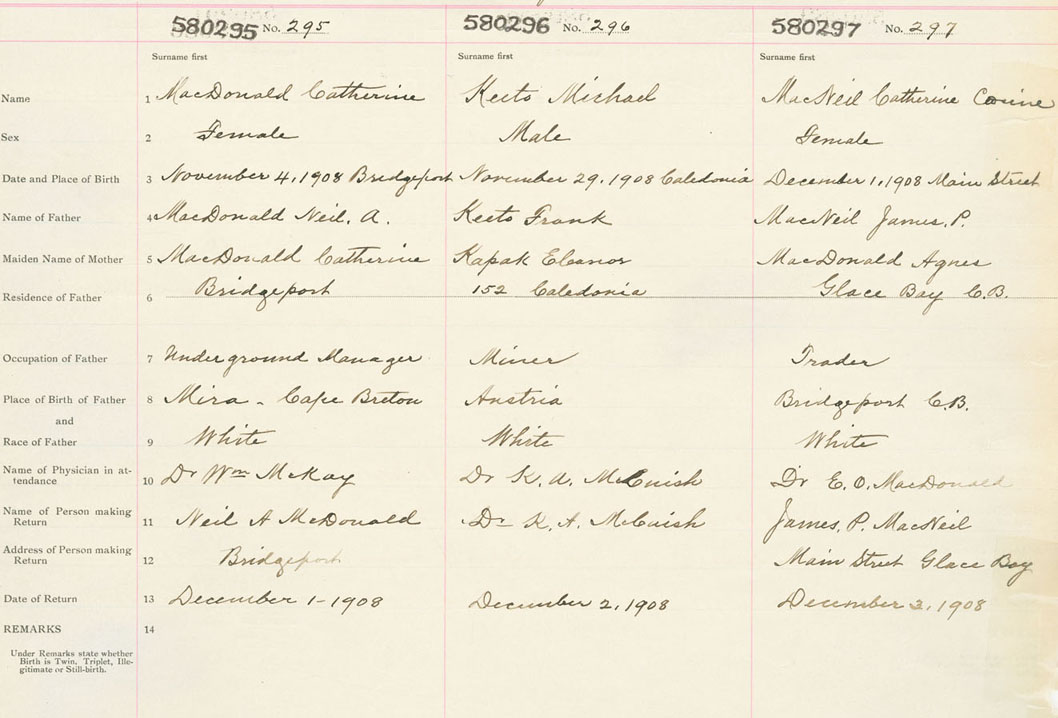 580295 No. 295 580296 No. 296 580297 No. 297
Surname first Surname first Surname first
Name 1 MacDonald Catherine Keeto Michael MacNeil Catherine Corine
Sex 2 Female Male Female
Date and Place of Birth 3 November 4, 1908 Bridgeport November 29, 1908 Caledonia December 1, 1908 Main Street
Name of Father 4 MacDonald Neil. A. Keeto Frank MacNeil James. P.
Maiden Name of Mother 5 MacDonald Catherine Kapak Eleanor MacDonald Agnes
Residence of Father 6 Bridgeport 152 Caledonia Glace Bay C.B.
Occupation of Father 7 Underground Manager Miner Trader
Place of Birth of Father 8 Mira - Cape Breton Austria Bridgeport C.B.
and
Race of Father 9 White White White
Name of Physician in at-
tendance 10 Dr Wm McKay Dr K. A. McCuish Dr E. O. MacDonald
Name of Person making
Return 11 Neil A McDonald Dr K. A. McCuish James. P. MacNeil
Address of Person making
Return 12 Bridgeport Main Street Glace Bay
Date of Return 13 December 1 - 1908 December 2, 1908 December 3, 1908
REMARKS 14
Under Remarks state whether
Birth is Twin, Triplet, Ille-
gitimate or Still-birth.